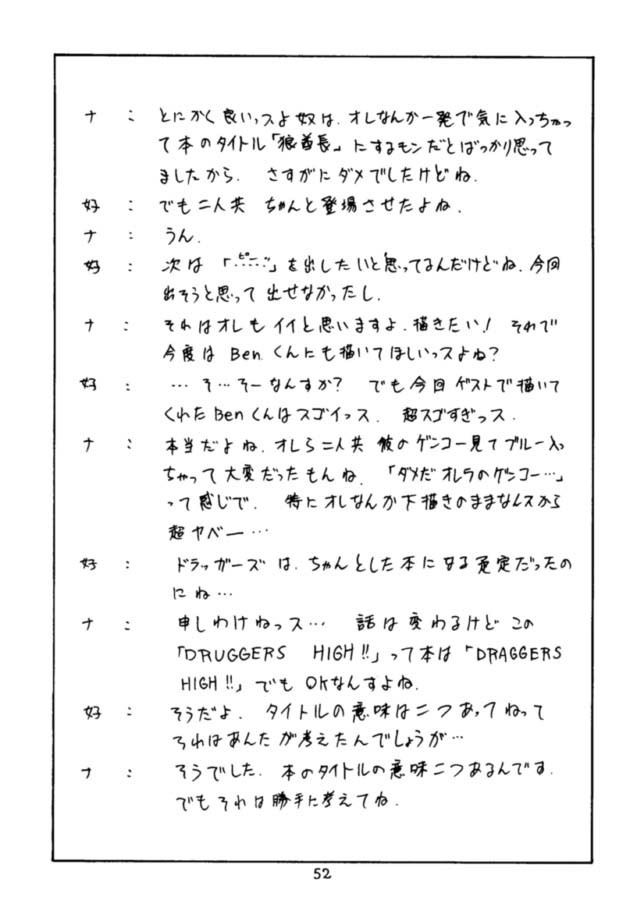 ナ : とにかく良いっスよ奴は. オレなんか一発で気に入っちゃっ
て本のタイトル「狼酋長」にするモンだとばっかり思って
ましたから. さすがにダメでしたけどね.
好 : でも二人共 ちゃんと登場させたよね.
ナ : うん.
好 : 次は「ピーー」を出したいと思ってるんだけどね. 今回
出そうと思って出せなかったし.
ナ : それはオレもイイと思いますよ. 描きたい! それで
今度は Ben.くんにも描いてほしいっスよね?
好 : …そ…そーなんすか? でも今回ゲストで描いて
くれた Benくんはスゴイっス. 超スゴすぎっス.
ナ : 本当だよね. オレら二人共 彼のゲンコー見てブルー入っ
ちゃって大変だったもんね. 「ダメだオレラのゲンコー…」
って感じで. 特にオレなんか下描きのままなんスから
超ヤベー…
好 : ドラッガーズは. ちゃんとした本になる予定だったの
にね…
ナ : 申しわけねっス… 話は変わるけどこの
「DRUGGERS HIGH!!」って本は「DRAGGERS
HIGH!!」でもOKなんすよね.
好 : そうだよ. タイトルの意味は二つあってねって
それはあんたが考えたんでしょうが…
ナ : そうでした. 本のタイトルの意味二つあるんです.
でもそれは勝手に考えてね.
52